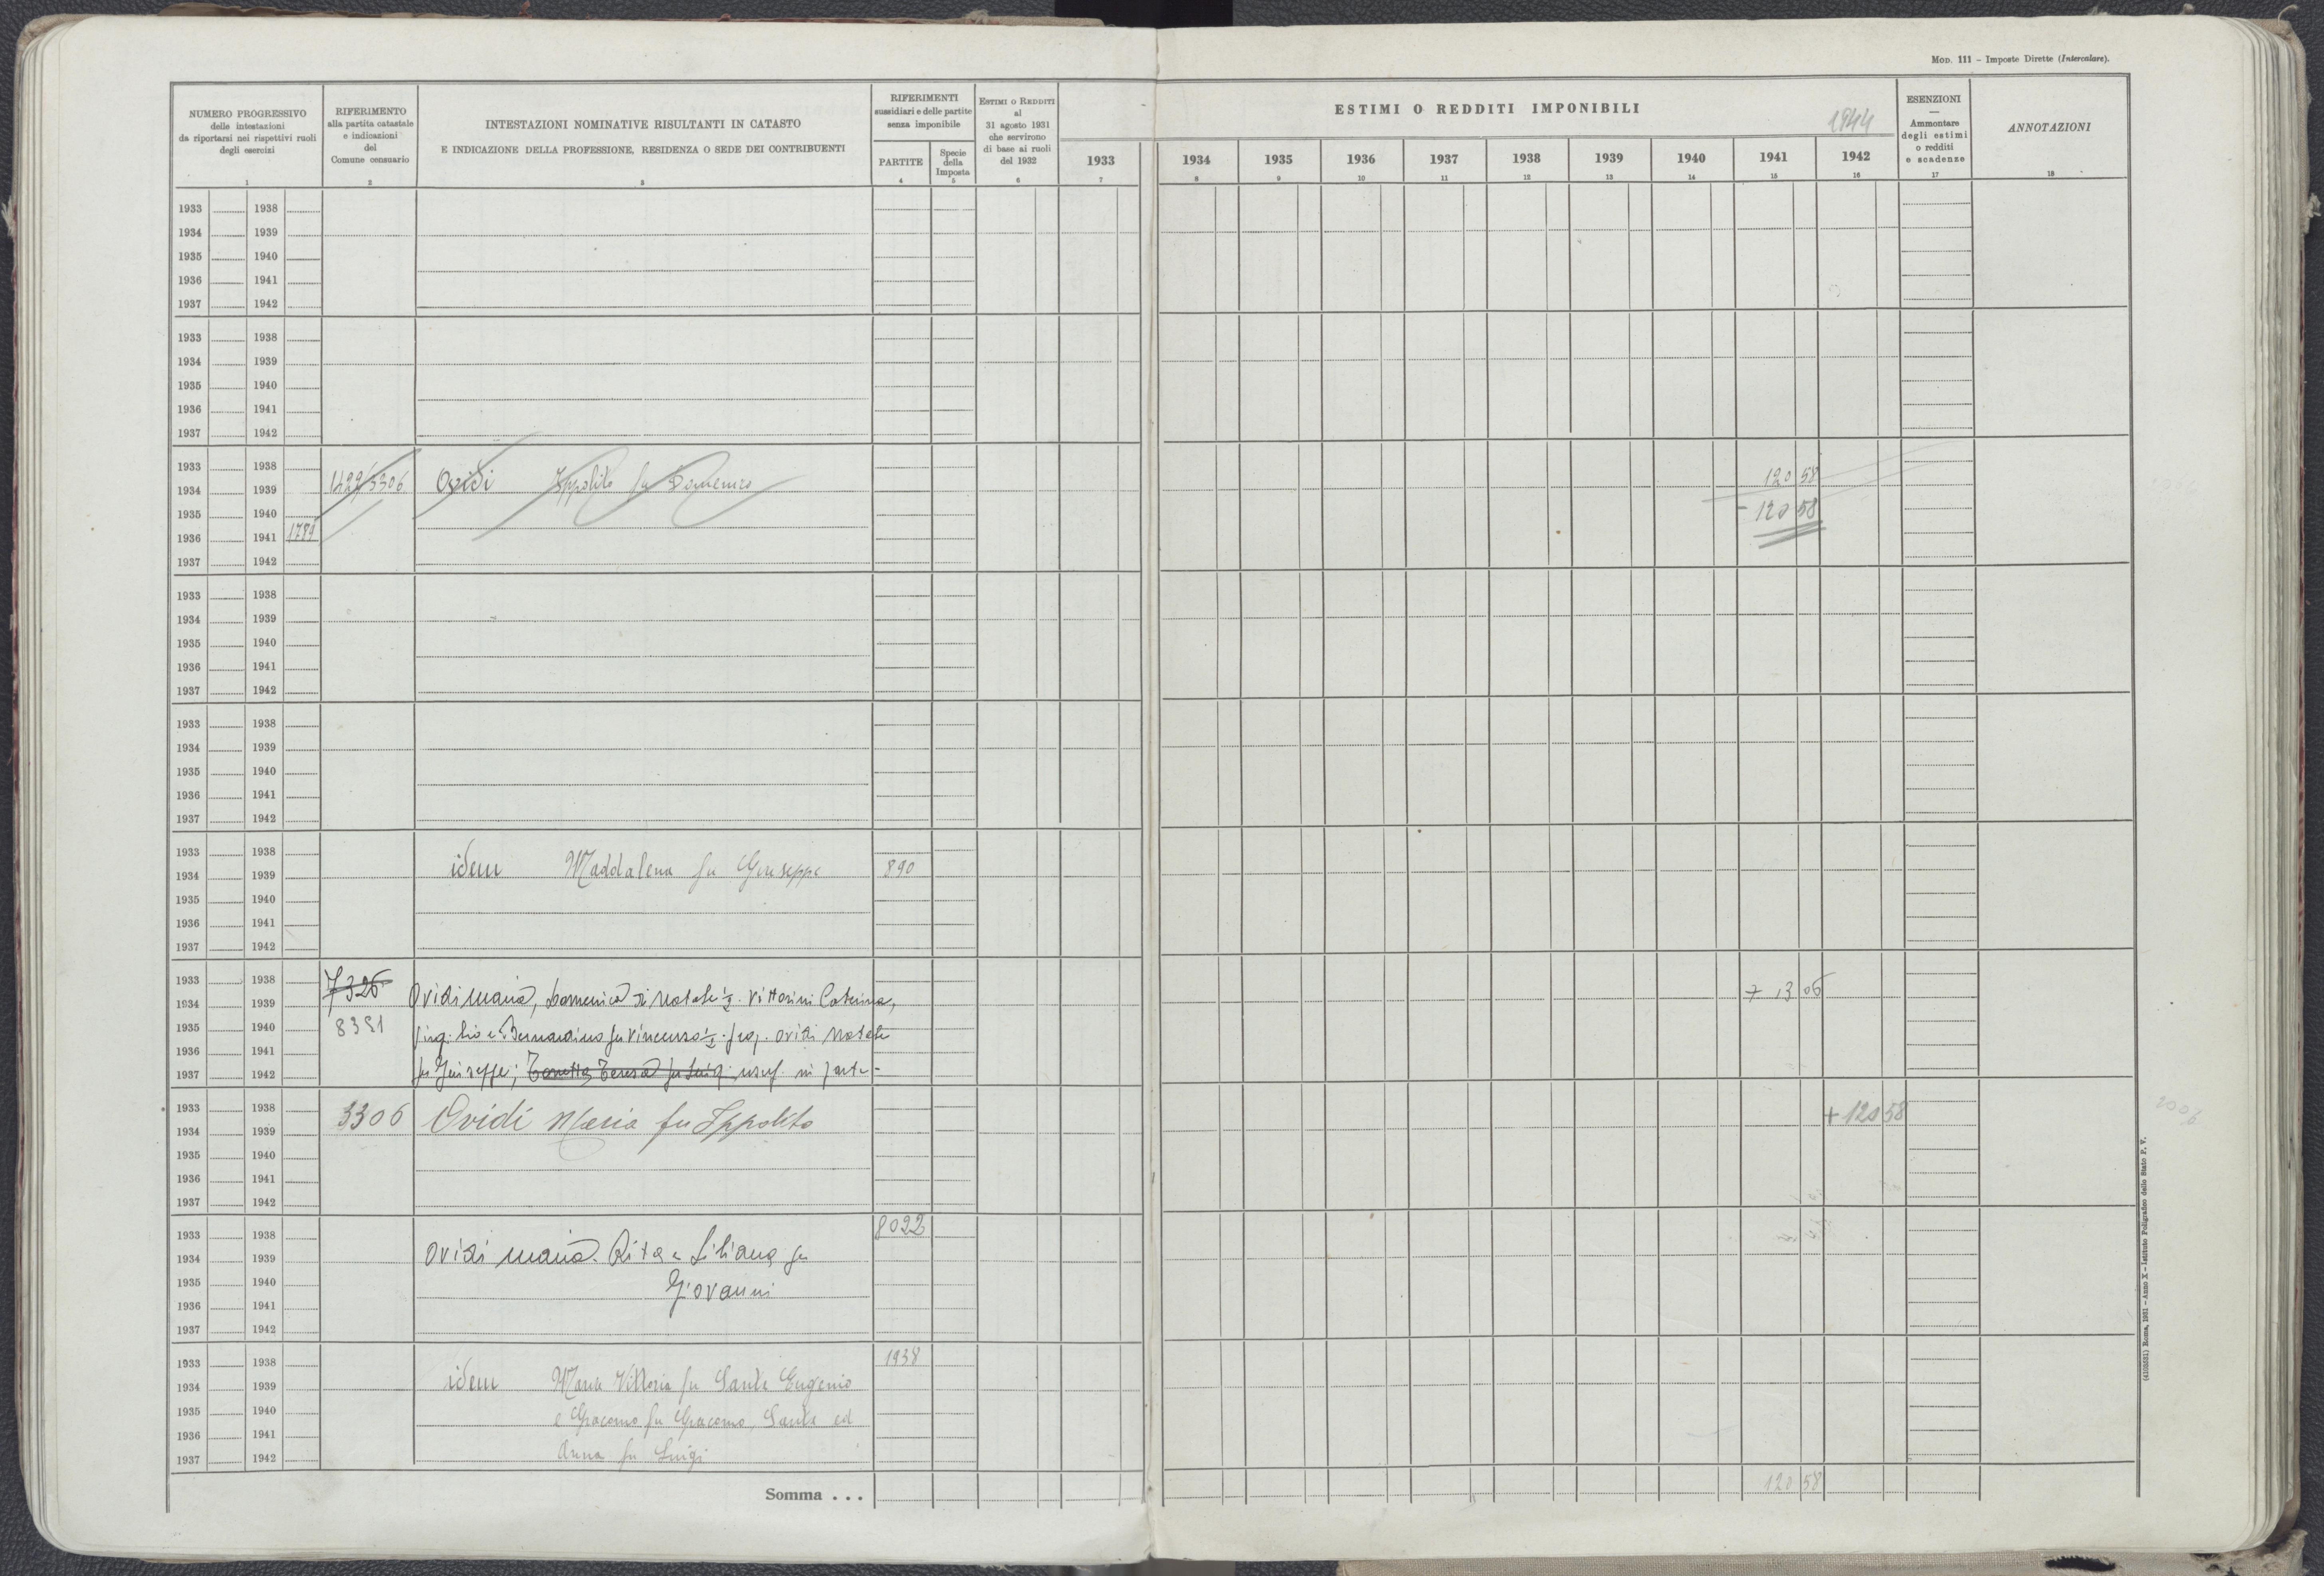 Mod. 111 – Imposte Dirette (Intercalare).
NUMERO PROGRESSIVO
delle intestazioni
da riportarsi nei rispettivi ruoli
degli esercizi
1
RIFERIMENTO
alla partita catastale
e indicazioni
del
Comune censuario
2
INTESTAZIONI NOMINATIVE RISULTANTI IN CATASTO
E INDICAZIONE DELLA PROFESSIONE, RESIDENZA O SEDE DEI CONTRIBUENTI
3
RIFERIMENTI
sussidiari e delle partite
senza imponibile
PARTITE
4
Specie
della
Imposta
5
Estimi o Redditi
al
31 agosto 1931
che servirono
di base ai ruoli
del 1932
6
ESTIMI O REDDITI IMPONIBILI
1944
1933 1934 1935 1936 1937 1938 1939 1940 1941 1942
7 8 9 10 11 12 13 14 15 16
ESENZIONI
—
Ammontare
degli estimi
o redditi
e scadenze
17
ANNOTAZIONI
18
1933 1938
1934 1939
1935 1940
1936 1941
1937 1942
1933 1938
1934 1939
1935 1940
1936 1941
1937 1942
1933 1938
1934 1939 3306 Ovidi Ippolito fu Domenico 120 58
1935 1940 - 120 58
1936 1941 1784
1937 1942
1933 1938
1934 1939
1935 1940
1936 1941
1937 1942
1933 1938
1934 1939
1935 1940
1936 1941
1937 1942
1933 1938
1934 1939 idem Maddalena fu Giuseppe 890
1935 1940
1936 1941
1937 1942
1933 1938 7326
1934 1939 Ovidi Maria, Domenica di Natale Vittorini Caterina, 13 06
1935 1940 8381 Virgilio e Bernardino fu Vincenzo Ovidi Natale
1936 1941
1937 1942 fu Giuseppe; Teresa fu Luigi usuf. in parte-
1933 1938 3306 Ovidi Maria fu Ippolito + 120 58
1934 1939
1935 1940
1936 1941
1937 1942
1933 1938 8022
1934 1939 Ovidi Maria. Rita e Liliana fu
1935 1940 Giovanni
1936 1941
1937 1942
1933 1938 1938
1934 1939 idem Maria Vittoria fu Sante Eugenio
1935 1940 e Giacomo fu Giacomo, Santa ed
1936 1941
1937 1942 Anna fu Luigi
Somma . . . 120 58
2006
(4105531) Roma, 1931 – Anno X – Istituto Poligrafico dello Stato P. V.